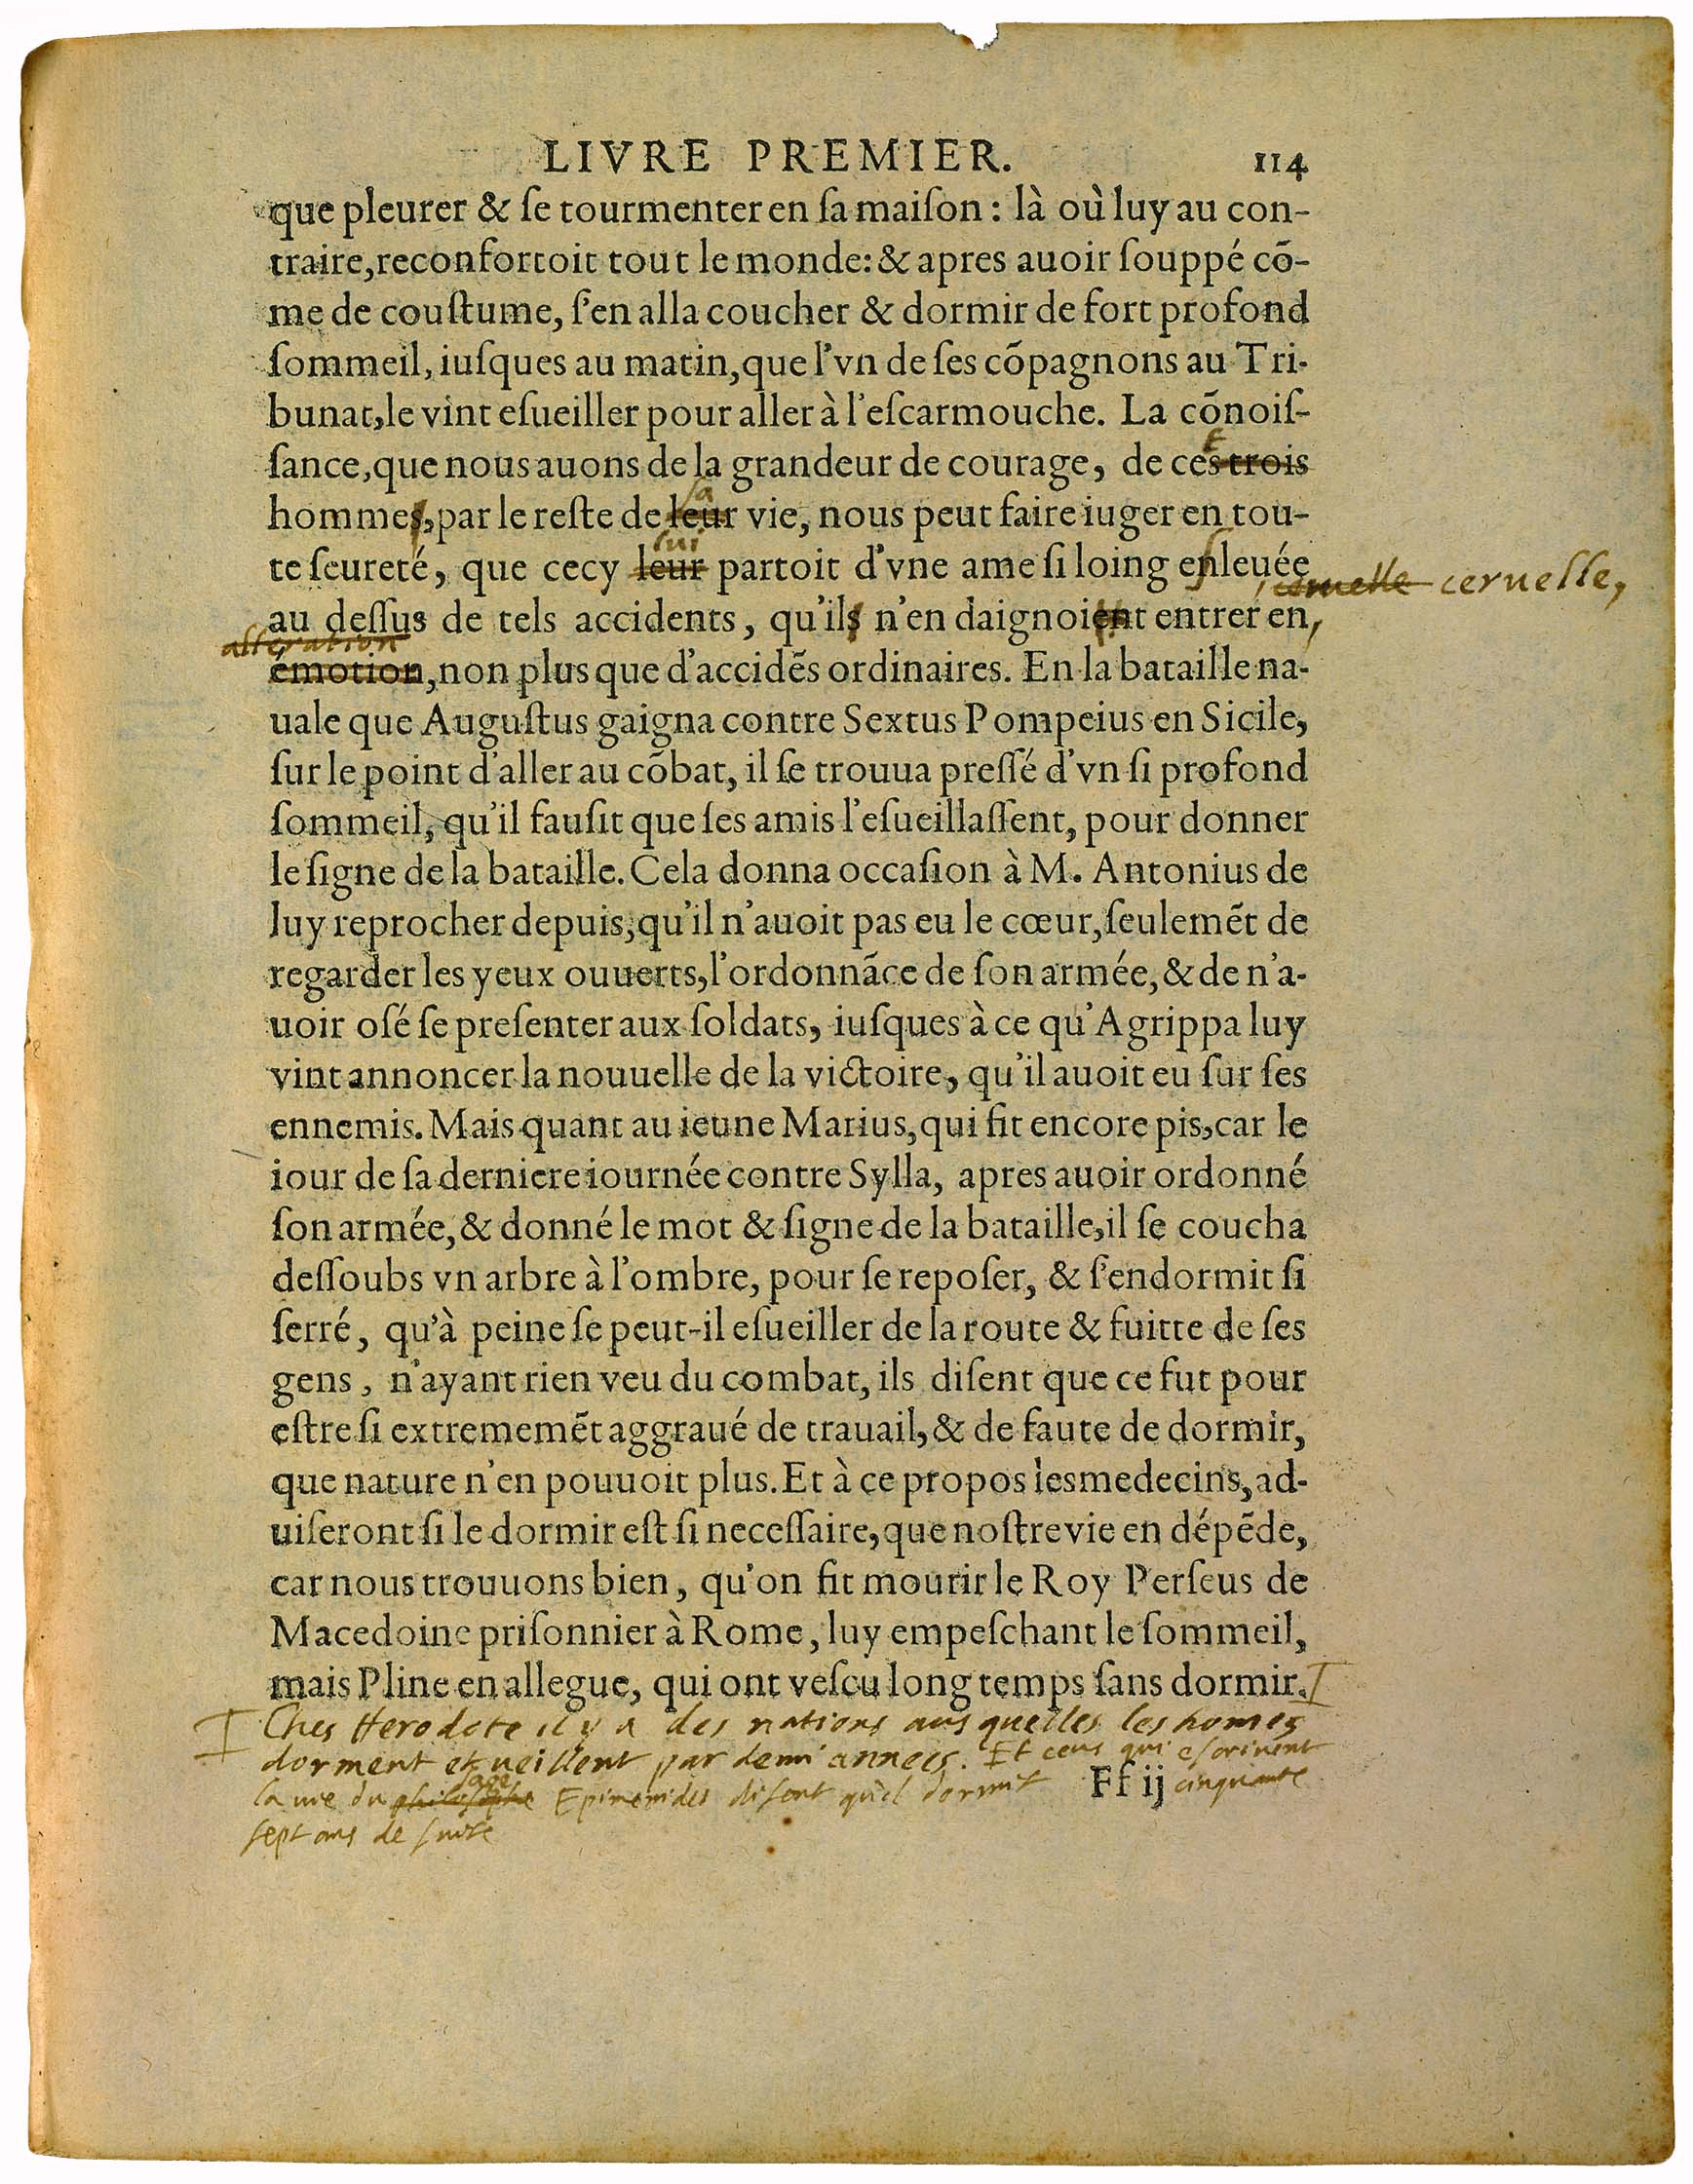 LIVRE PREMIER. 114
que pleurer & ſe tourmenter en ſa maiſon : là où luy au con-
traire, reconfortoit tout le monde: & apres auoir ſouppé cō-
me de couſtume, ſ'en alla coucher & dormir de fort profond
ſommeil, iuſques au matin, que l'vn de ſes cōpagnons au Tri-
bunat, le vint eſueiller pour aller à l'eſcarmouche. La cōnoiſ-
ſance, que nous auons de la grandeur de courage, de ces trois
t
hommes, par le reſte de leur vie, nous peut faire iuger en tou-
sa
te ſeureté, que cecy leur partoit d'vne ame ſi loing enleuée
lui
au deſſus de tels accidents, qu'ils n'en daignoient entrer en,
ceruelle ceruelle,
alteration
émotion, non plus que d'accidēs ordinaires. En la bataille na-
uale que Auguſtus gaigna contre Sextus Pompeius en Sicile,
ſur le point d'aller au cōbat, il ſe trouua preſſé d'vn ſi profond
ſommeil, qu'il fauſit que ſes amis l'eſueillaſſent, pour donner
le ſigne de la bataille. Cela donna occaſion à M. Antonius de
luy reprocher depuis, qu'il n'auoit pas eu le cœur, ſeulemēt de
regarder les yeux ouuerts, l'ordonnāce de ſon armée, & de n'a-
uoir oſé ſe preſenter aux ſoldats, iuſques à ce qu'Agrippa luy
vint annoncer la nouuelle de la victoire, qu'il auoit eu ſur ſes
ennemis. Mais quant au ieune Marius, qui fit encore pis, car le
iour de ſa derniere iournée contre Sylla, apres auoir ordonné
ſon armée, & donné le mot & ſigne de la bataille, il ſe coucha
deſſoubs vn arbre à l'ombre, pour ſe repoſer, & ſ'endormit ſi
ſerré, qu'à peine ſe peut-il eſueiller de la route & fuitte de ſes
gens, n'ayant rien veu du combat, ils diſent que ce fut pour
eſtre ſi extrememēt aggraué de trauail, & de faute de dormir,
que nature n'en pouuoit plus. Et à ce propos les medecins, ad-
uiſeront ſi le dormir eſt ſi neceſſaire, que noſtre vie en dépēde,
car nous trouuons bien, qu'on fit mourir le Roy Perſeus de
Macedoine priſonnier à Rome, luy empeſchant le ſommeil,
mais Pline en allegue, qui ont veſcu long temps ſans dormir.
Ches Herodote il y a des nations aus quelles les homes
dorment et ueillent par demi annees. Et ceus qui escriuent
sage
la uie du philosophe Epimenides disent qu'il dormit Ff ij cinquante
sept ans de suite